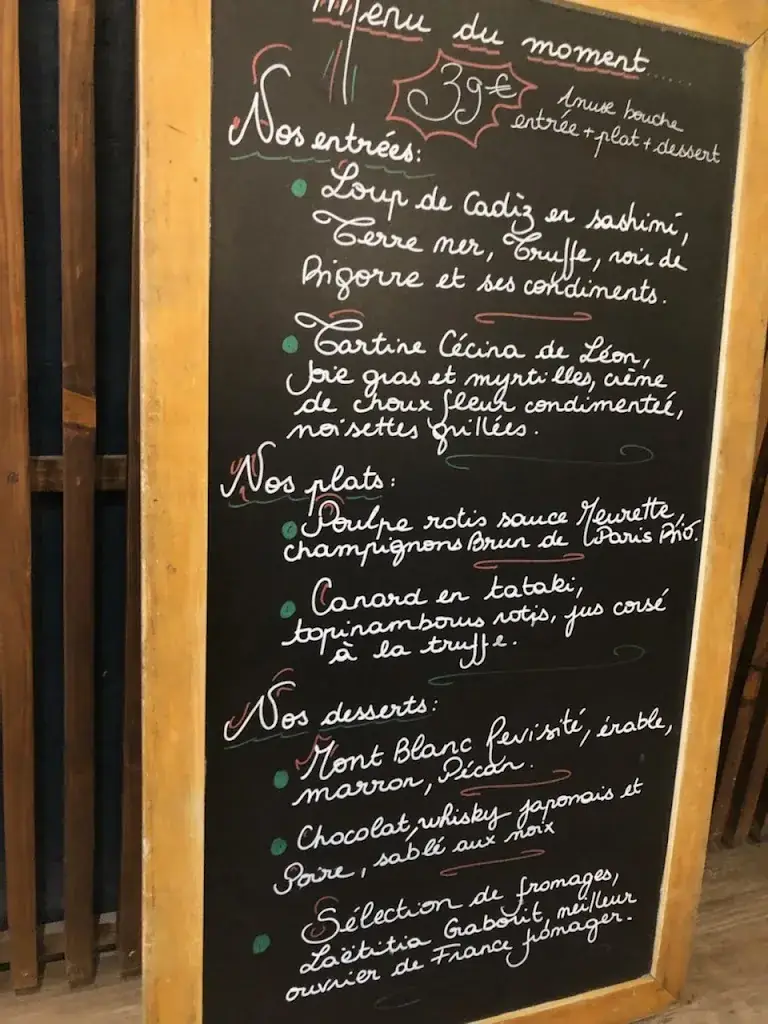 Menu du moment......
39€
Amuse bouche
entrée + plat + dessert
Nos entrées:
Loup de Cadiz en sashimi,
Terre mer, Truffe, noir de
Bigorre et ses condiments.
Tartine Cécina de Léon,
foie gras et myrtilles, crème
de choux fleur condimenteé,
noisettes grillées.
Nos plats:
Poulpe rotis sauce Meurette,
champignons Brun de Paris Bio.
Canard en tataki,
topinambours rotis, jus corsé
à la truffe.
Nos desserts:
Mont Blanc revisité, érable,
marron, Pécan.
Chocolat, whisky japonais et
Poire, sablé aux noix
Sélection de fromages,
Laëtitia Gaborit, meilleur
ouvrier de France fromager.